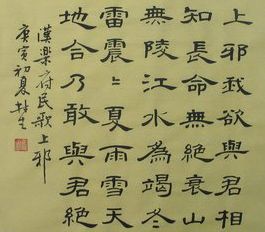 上邪我欲與君相
知長命無絕衰山
無陵江水為竭冬
雷震〻夏雨雪天
地合乃敢與君絕
漢樂府民歌上邪
庚寅初夏